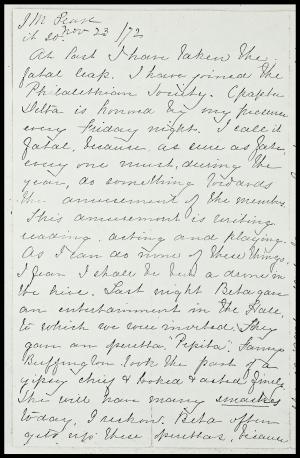 J M Pease
Nov 23 /72
At last I have taken the
fatal leap. I have joined the
Philalethian Society. Chapter
Delta is honored by my presence
every Friday night. I call it
fatal, because, as sure as fate,
every one must, during the
year, do something towards
the amusement of the members.
This amusement is writing
reading, acting and playing.
As I can do none of these things,
I fear I shall be but a drone in
the hive. Last night Beta gave
an entertainment in the Hall,
to which we were invited. They
gave an operetta "Pepita". Fanny
Buffington took the part of a
gipsy chief & looked & acted finely.
She will have many smashes
today, I reckon. Beta often
gets up these operettas, because